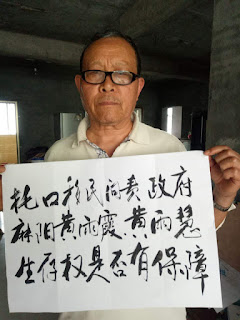 托口移民问责政府
麻阳黄雨霞黄雨慧
生存权是否有保障